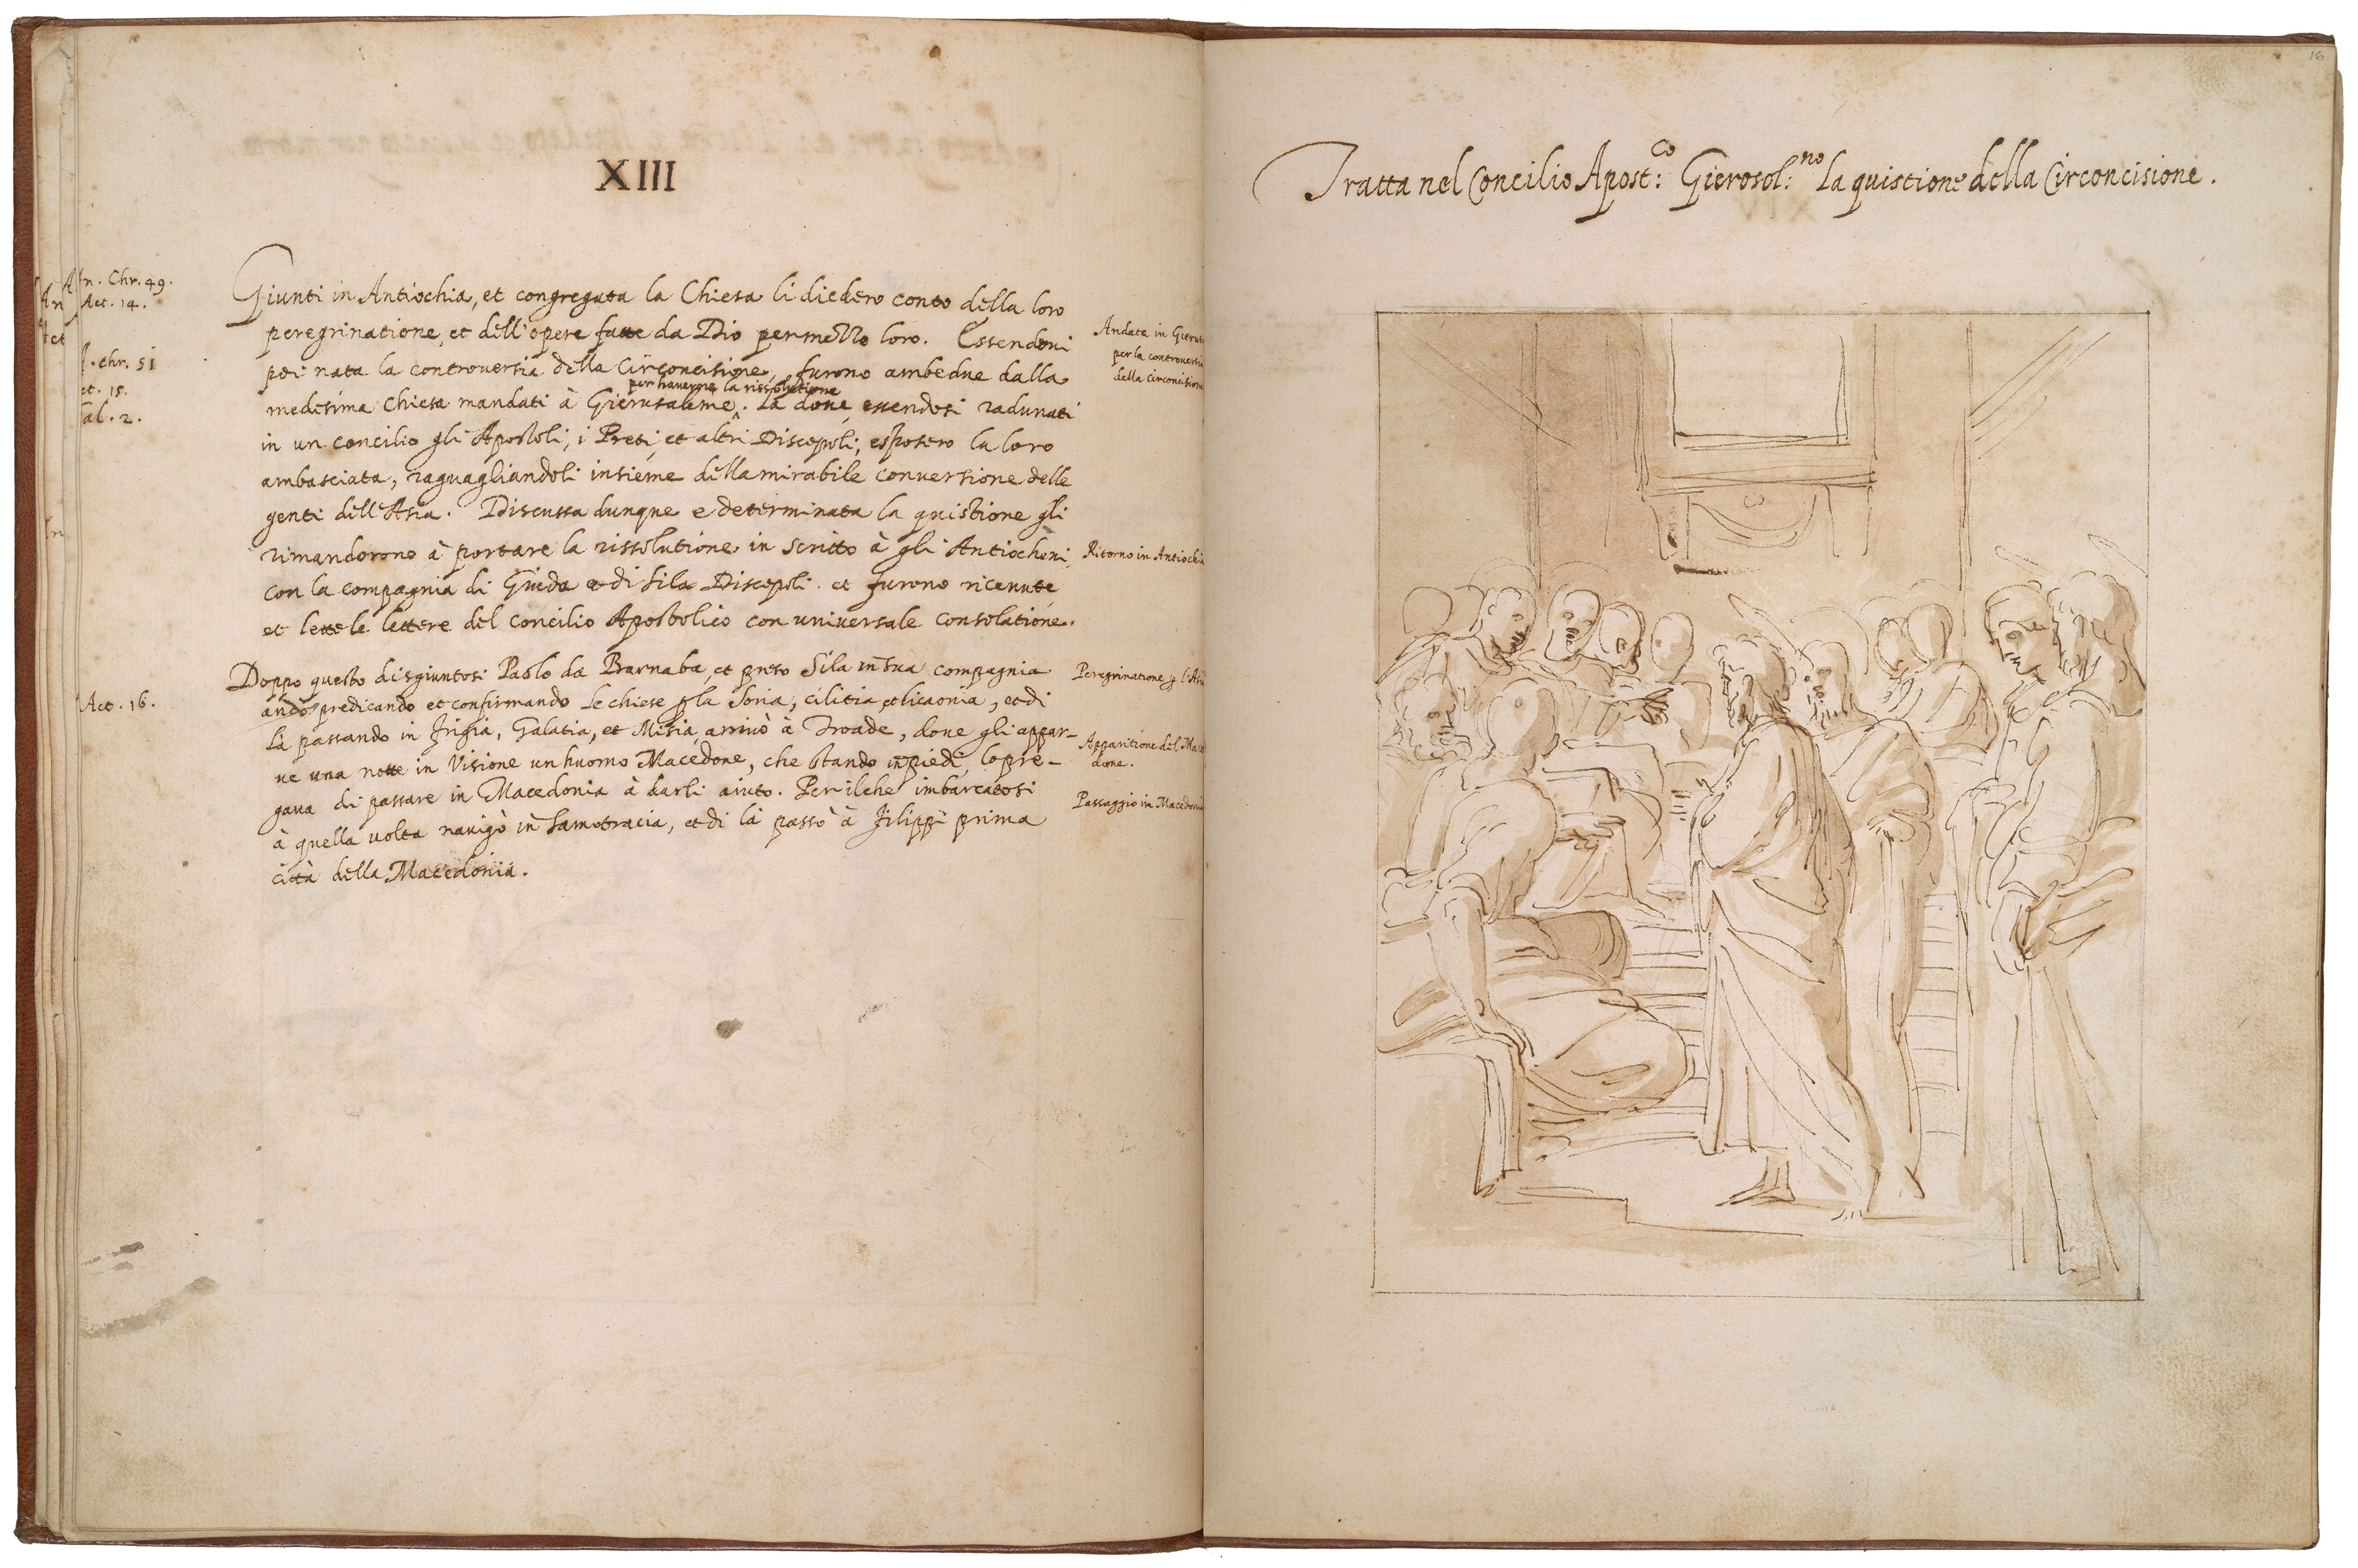 XIII
An. Chr. 49.
Act. 14.
Giunti in Antiochia, et congregata la Chiesa li diedero conto della loro
peregrinatione, et dell'opere fatte da Dio per mezzo loro. Essendoui
poi nata la controuersia della Circoncisione, furono ambedue dalla
per hauerne la rissolutione
medesima Chiesa mandati à Gierusaleme. Là doue, essendosi radunati
in un concilio gli Apostoli, i Preti, et altri Discepoli; esposero la loro
ambasciata, raguagliandoli insieme della mirabile conuersione delle
genti dell'Asia. Discussa dunque e determinata la quistione gli
rimandorono à portare la rissolutione in scritto à gli Antiocheni,
con la compagnia di Giuda e di Sila Discepoli. et furono riceuute,
et lette le lettere del concilio Apostolico con uniuersale consolatione.
Chr. 51
et. 15.
al. 2.
Andata in Gierus
per la controuersia
della Circoncisione
Ritorno in Antiochia
Doppo questo disgiuntosi Paolo da Barnaba, et preso Sila in sua compagnia
andò predicando et confirmando le chiese p la Soria, cilitia, et licaonia, et di
là passando in Frigia, Galatia, et Misia, arriuò à Troade, doue gli appar-
ue una notte in Visione un huomo Macedone, che stando in piedi, lo pre-
gaua di passare in Macedonia à darli aiuto. Per il che imbarcatosi
à quella uolta nauigò in Samotracia, et di là passò à Filippi prima
città della Macedonia.
Act. 16.
Peregrinatione p l'Asi
Apparitione del Mace
done.
Passaggio in Macedonia
16
Tratta nel Concilio Apost:co Gierosol:no la quistione della Circoncisione.